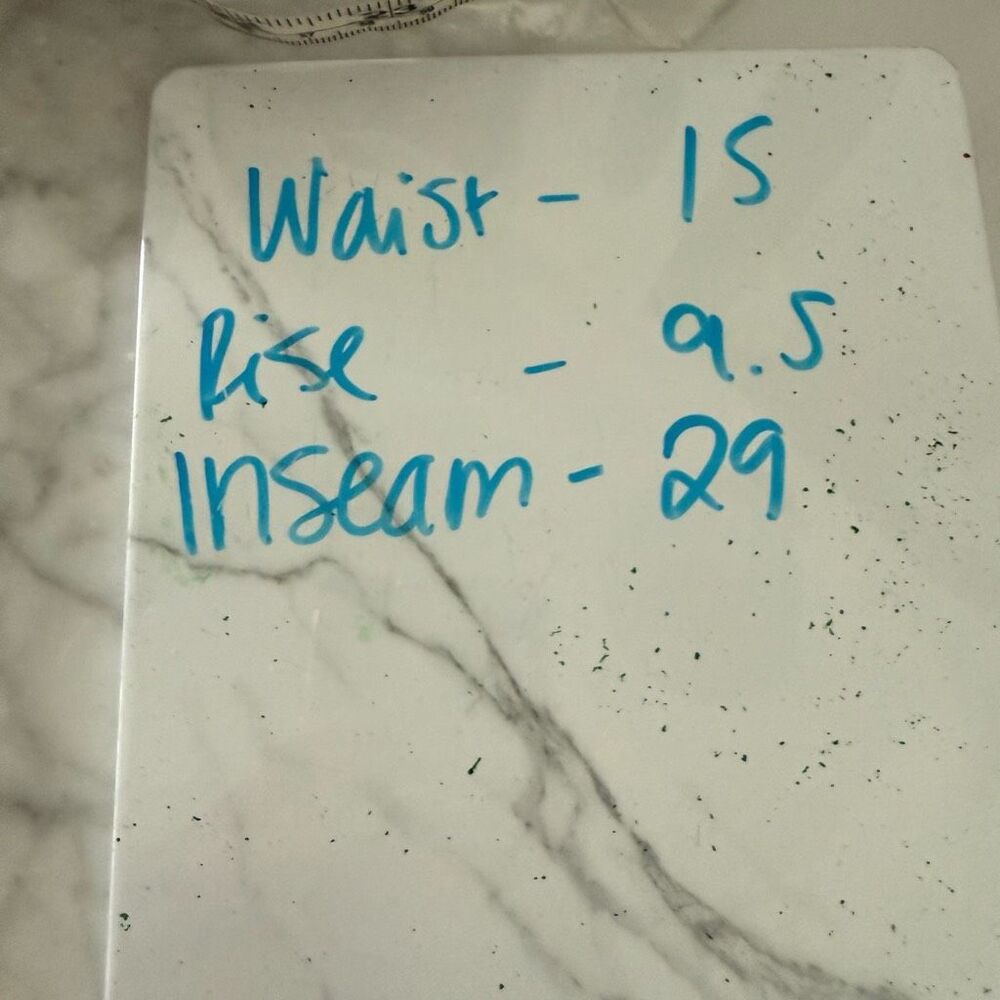 Waist - 15
Rise - 9.5
Inseam - 29